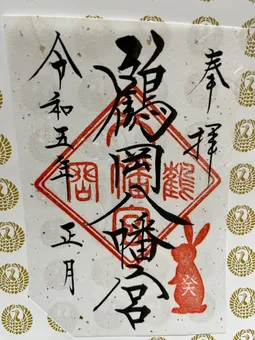 奉拝
鶴岡八幡宮
令和五年 正月
鶴
幡宮
癸